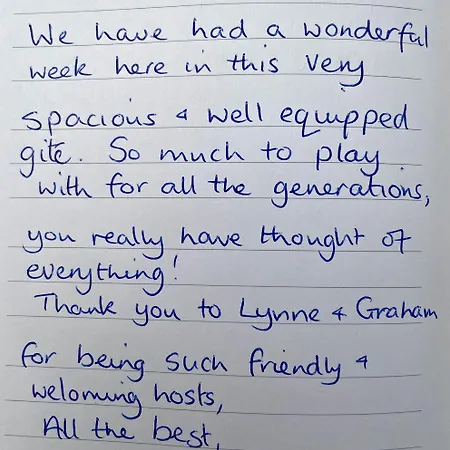 We have had a wonderful
week here in this very
spacious & well equipped
gite. So much to play
with for all the generations,
you really have thought of
everything!
Thank you to Lynne & Graham
for being such friendly &
weloming hosts,
All the best,